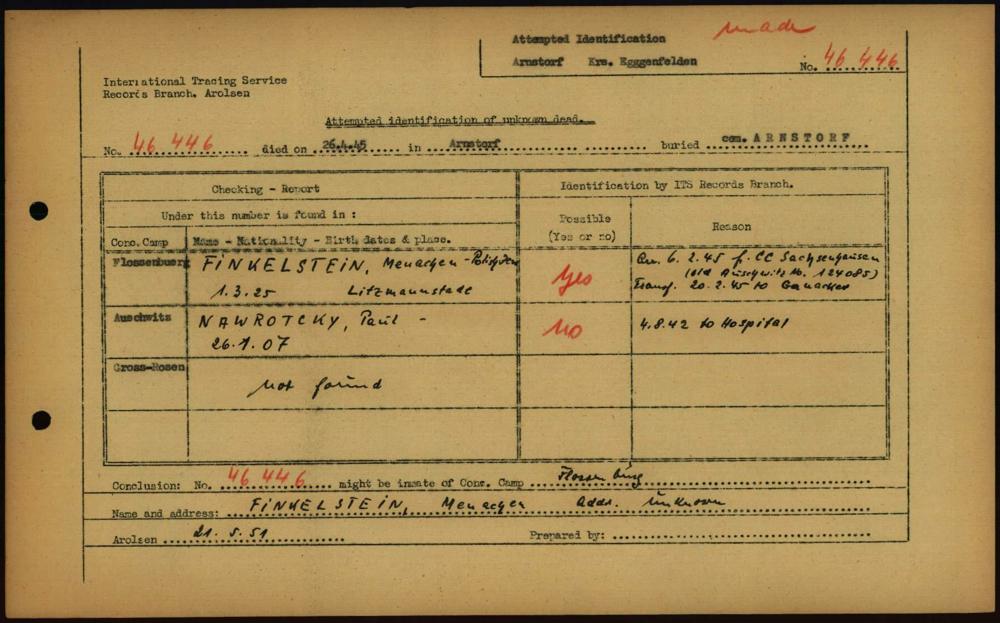 made
Attempted Identification
Arnstorf Krs. Egggenfelden
No. 46 446
International Tracing Service
Records Branch. Arolsen
Attempted identification of unknown dead.
No. 46 446 died on 26.4.45 in Arnstorf buried cem. ARNSTORF
Checking - Report
Identification by ITS Records Branch.
Under this number is found in :
Possible
(Yes or no)
Reason
Conc. Camp
Name - Nationality - Birth dates & place.
Flossenbuerg
FINKELSTEIN, Menachen - Polish Jew
1.3.25 Litzmannstadt
Yes
Arr. 6.2.45 f. CC Sachsenhausen
(old Auschwitz No. 124085)
Transf. 20.2.45 to Ganacker
Auschwitz
NAWROTCKY, Paul -
26.1.07
No
4.8.42 to Hospital
Gross-Rosen
not found
Conclusion: No. 46 446 might be inmate of Conc. Camp Flossenbürg
Name and address: FINKELSTEIN, Menachen Addr. unknown
Arolsen 21.5.51 Prepared by: